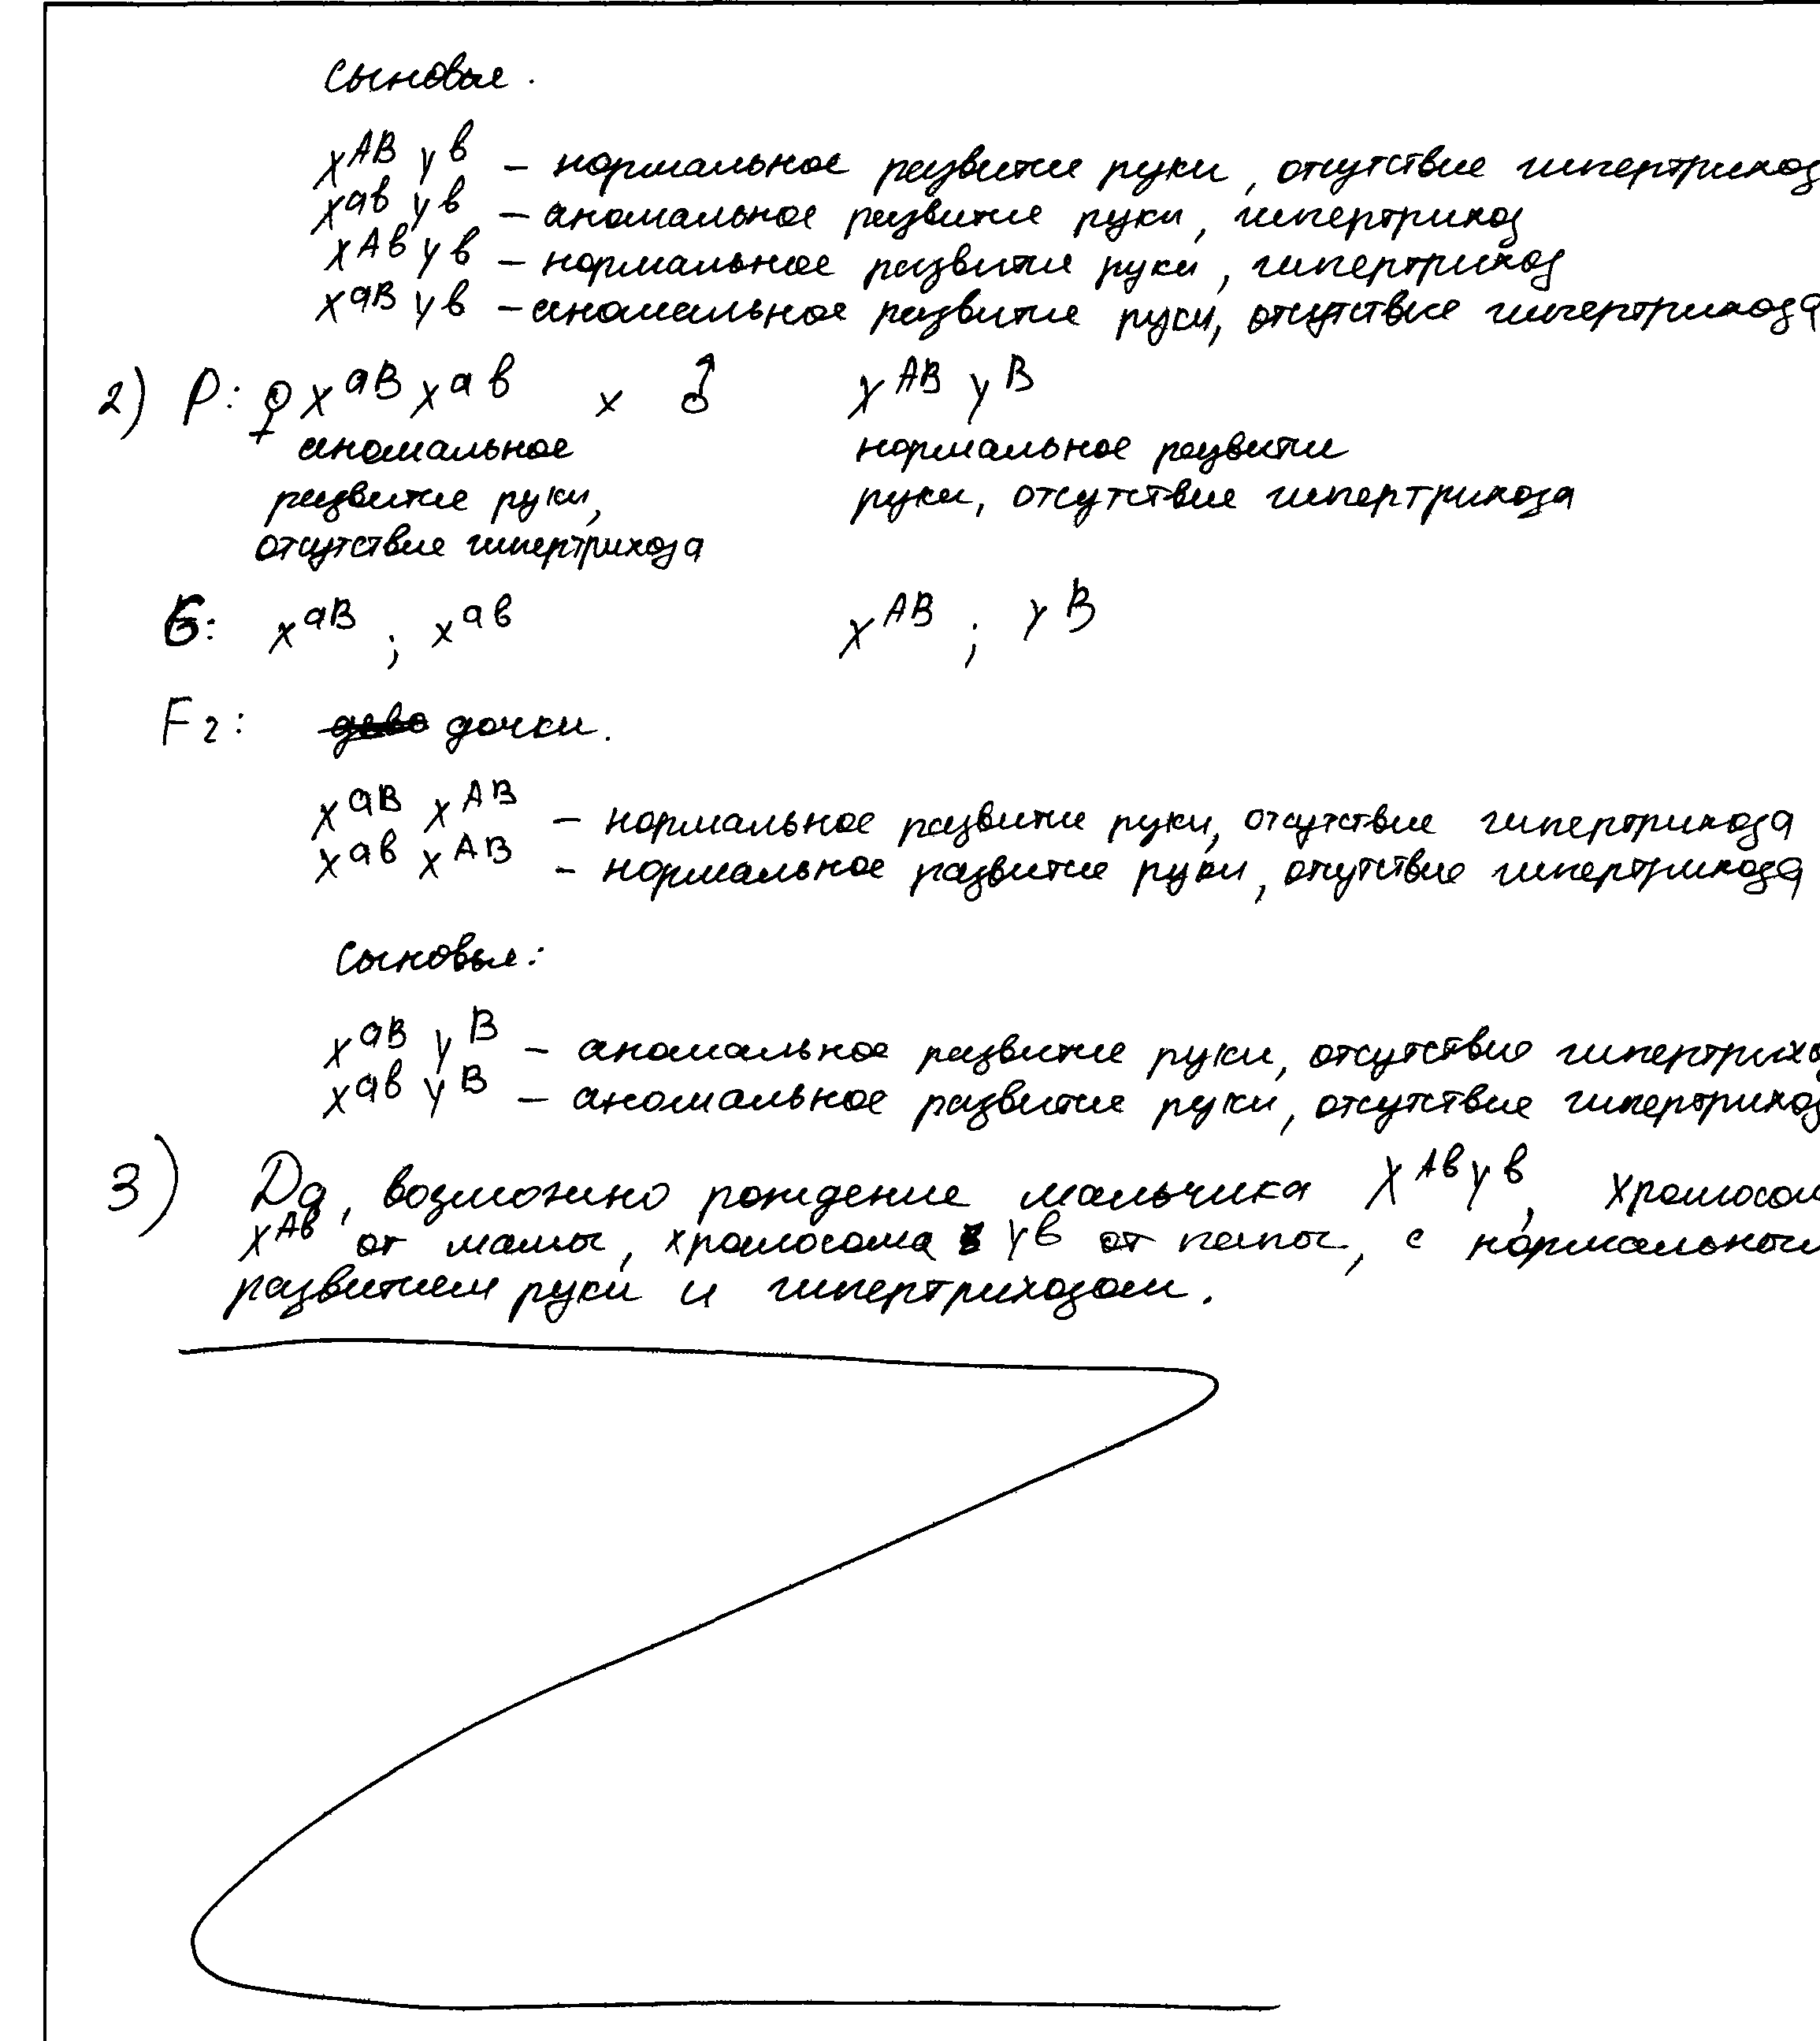 сыновье.
X^AB Y^в – нормальное развитие руки, отсутствие гипертрихоз
X^ав Y^в – аномальное развитие руки, гипертрихоз
X^Ав Y^в – нормальное развитие руки, гипертрихоз
X^аВ Y^в – аномальное развитие руки, отсутствие гипертрихоза
2) P: ♀ X^аВ X^ав × ♂ X^АВ Y^В
аномальное нормальное развитии
развитие руки, руки, отсутствие гипертрихоза
отсутствие гипертрихоза
G: X^аВ ; X^ав X^АВ ; Y^В
F2: дочки.
X^аВ X^АВ – нормальное развитие руки, отсутствие гипертрихоза
X^ав X^АВ – нормальное развитие руки, отсутствие гипертрихоза
Сыновье:
X^аВ Y^В – аномальное развитие руки, отсутствие гипертрихо
X^ав Y^В – аномальное развитие руки, отсутствие гипертрихоз
3) Да, возможно рождение мальчика X^Ав Y^в, хромосом
X^Ав от мамы, хромосома Y^в от папы, с нормальным
развитием руки и гипертрихозом.